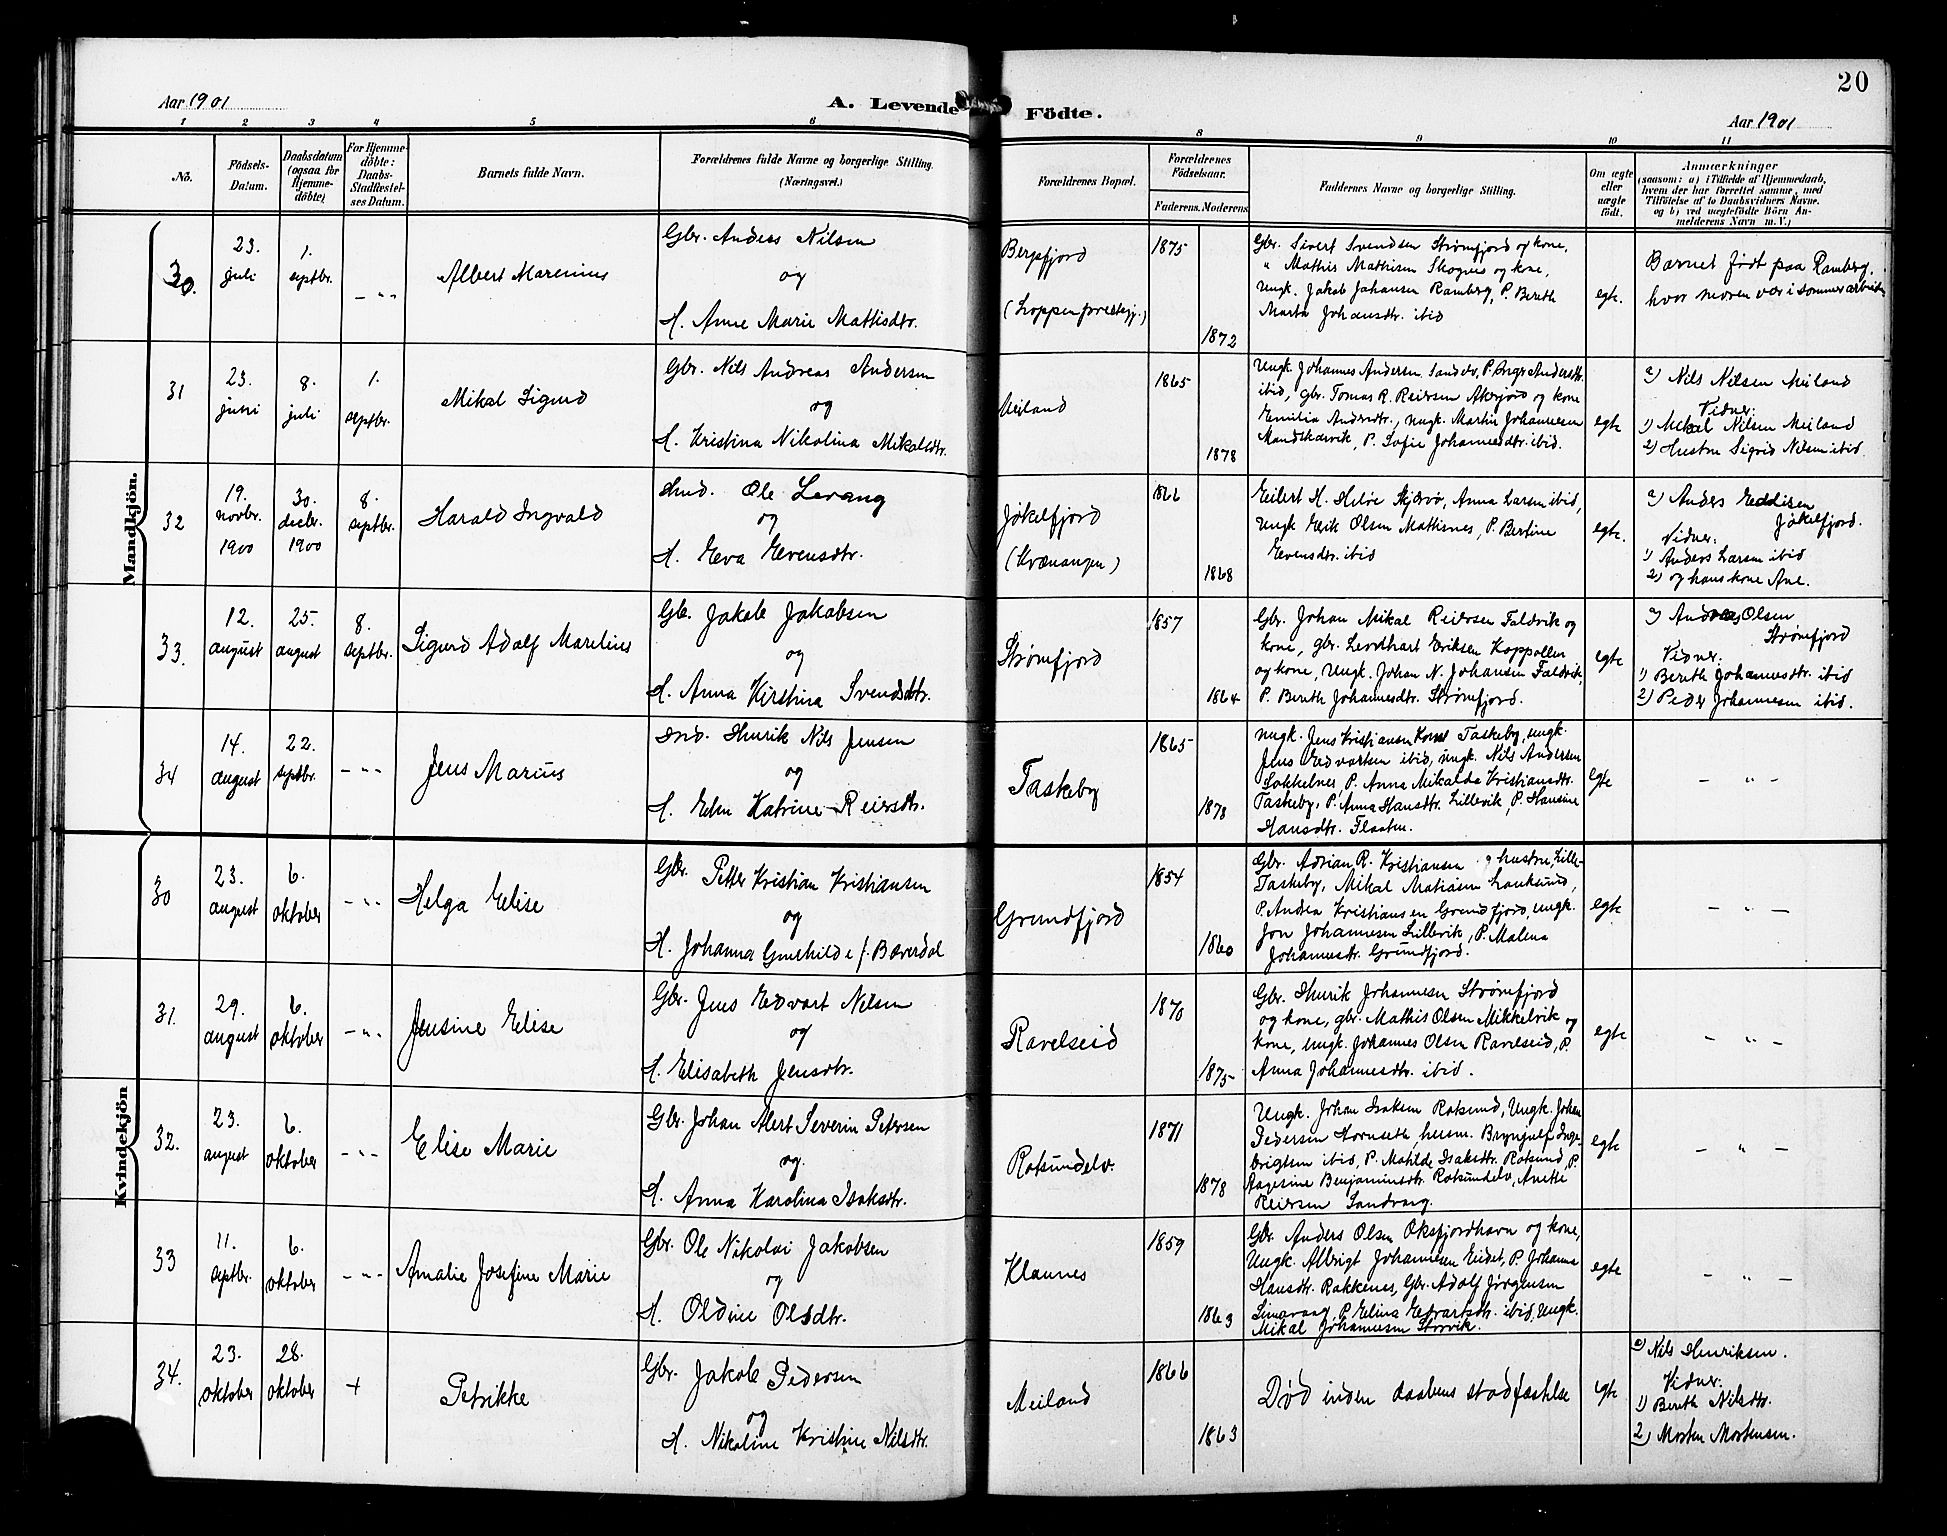 20
Aar 1901
A. Levende Födte.
Aar 1901
1 2 3 4 5 6 8 9 10 11
No.
Födsels-Datum.
Daabsdatum (ogsaa for Hjemme-döbte)
For Hjemme-döbte: Daabs-Stadfæstel-ses Datum.
Barnets fulde Navn.
Forældrenes fulde Navne og borgerlige Stilling.
(Næringsvei.)
Forældrenes Bopæl.
Forældrenes Födselsaar.
Faderens. Moderens.
Faddernes Navne og borgerlige Stilling.
Om ægte eller uægte födt.
Anmærkninger
(saasom: a) i Tilfælde af Hjemmedaab,
hvem der har forrettet samme, med
Tilföielse af to Daabsvidners Navne.
og b) ved uægtefödte Börn An-
melderens Navn m. V.)
Mandkjön.
30.
23. juli
1. septbr.
- " -
Albert Marenius
Gbr. Anders Nilsen
og
H. Anne Marie Mattisdtr.
Bergsfjord
(Loppen præstegj.)
1875
1872
Gbr. Sivert Svendsen Strømfjord og kone,
" Mathis Mathisen Skognes og kone,
Ungk. Jakob Johansen Ramberg, P. Berith
Marta Johansdtr. ibid
egte.
Barnet født paa Ramberg,
hvor moren var i sommerarbeide
31
23. juni
8. juli
1. septbr.
Mikal Sigurd
Gbr. Nils Andreas Andersen
og
H. Kristina Nikolina Mikalsdtr.
Meiland
1865
1878
Ungk. Johannes Andersen Sandelv, P. Inger Andersdtr.
ibid, gbr. Tomas R. Reiersen Akrjord og kone
Emilia Andrsdtr., ungk. Martin Johannesen
Mandskarvik, P. Sofie Johannesdtr. ibid.
egte
a) Nils Nilsen Meiland
Vidner:
1) Mikal Nilsen Meiland
2) Hustru Sigrid Nilsen ibid.
32
19. novbr. 1900
30. decbr. 1900
8. septbr.
Harald Ingvald
Ole Levang
og
H. Eva Evensdtr.
Jøkelfjord
(Kvænangen)
1866
1868
Eilert H. Heløe Skjervø, Anna Larsen ibid,
Ungk Erik Olsen Mattisnes, P. Bertine
Evensdtr. ibid
egte.
a) Anders Eddisen
Jøkelfjord.
Vidner:
1) Anders Larsen ibid
2) og hans kone Ane.
33.
12. august
25. august
8. septbr.
Sigurd Adolf Marelius
Gbr. Jakob Jakobsen
og
H. Anna Kirstina Svendsdtr.
Strømfjord
1857
1864
Gbr. Johan Mikal Reiersen Faldvik og
kone, gbr. Leonhart Eriksen Koppollen
og kone, Ungk. Johan N. Johansen Faldvik,
P. Berith Johannesdtr. Strømfjord.
egte
a) Andreas Olsen
Strømfjord
Vidner:
1) Berith Johannesdtr. ibid
2) Peder Johannesen ibid.
34
14. august
22. septbr.
- " -
Jens Marius
Ind. Henrik Nils Jensen
og
H. Elen Katrine Reiersdtr.
Taskeby
1865
1878
ungk. Jens Kristiansen Taskeby, ungk.
Jens Edvartsen ibid, ungk. Nils Andersen
Sokkelnes, P. Anna Mikalda Kristiansdtr.
Taskeby, P. Anna Hansdtr. Lillevik, P. Hansine
Hansdtr. Flaaten.
egte
- " -
Kvindekjön
30
23. august
6. oktober
- " -
Helga Elise
Gbr. Petter Kristian Kristiansen
og
H. Johanna Gunhilde f. Bæverdal
Grundfjord
1854
1860
Gbr. Adrian R. Kristiansen og hustru, Lille-
Taskeby, Mikal Matiasen Lauksund,
P. Andrea Kristiansen Grundfjord, ungk.
Jon Johannesen Lillevik, P. Malena
Johannesdtr. Grundfjord.
egte
- " -
31.
29. august
6. oktober
- " -
Jensine Elise
Gbr. Jens Edvart Nilsen
og
H. Elisabeth Jensdtr.
Ravelseid
1870
1875
Gbr. Henrik Johannesen Strømfjord
og kone, gbr. Mathis Olsen Mikkelvik og
kone, ungk. Johannes Olsen Ravelseid, P.
Anna Johannesdtr. ibid.
egte
- " -
32.
23. august
6. oktober
- " -
Elise Marie
Gbr. Johan Alert Severin Petersen
og
H. Anna Karolina Isaksdtr.
Rotsundelv.
1871
1878
Ungk. Johan Isaksen Rotsund, Ungk. Johan
Pedersen Hornseth, herm. Brynjulf Inge-
brigtsen ibid, P. Matilde Isaksdtr. Rotsund, P.
Aagesine Benjaminsdtr. Rotsundelv, Anette
Reiersen Sandvaag.
egte
- " -
33
11. septbr.
6. oktober
- " -
Amalie Josefine Marie
Gbr. Ole Nikolai Jakobsen
og
H. Oldine Olsdtr.
Klaunes
1859
1863
Gbr. Anders Olsen Oksfjordhavn og kone,
Ungk. Albrigt Johannesen Eidet, P. Johanna
Hansdtr. Rakkenes, Gbr. Adolf Jørgensen
Simavaag, P. Elina Edvartsdtr. ibid, Ungk.
Mikal Johannesen Storvik.
egte
- " -
34.
23. oktober
28. oktober
+
Petrikke
Gbr. Jakob Pedersen
og
H. Nikoline Kristine Nilsdtr.
Meiland
1866
1863
Død inden daabens stadfæstelse
egte
a) Nils Henriksen.
Vidner:
1) Berith Nilsdtr.
2) Morten Mortensen.